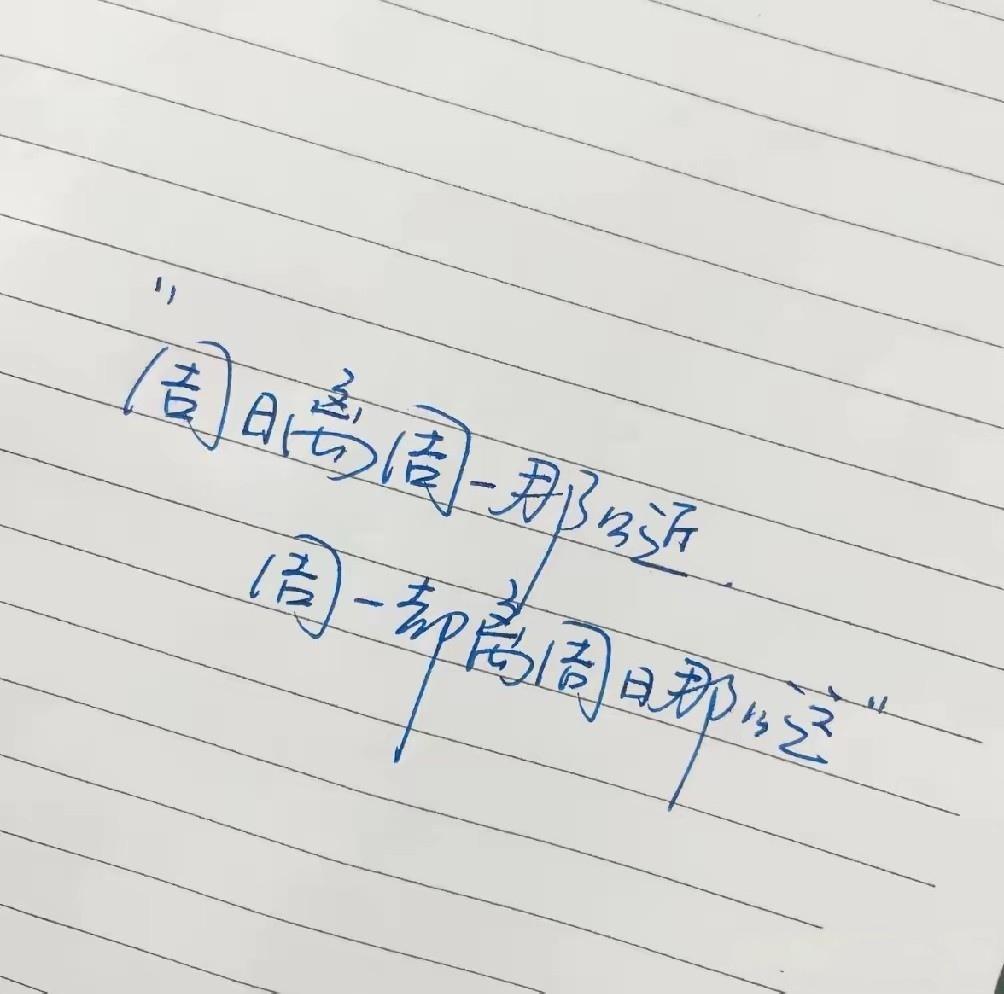 "
周日离周一那么近.
周一却离周日那么远"